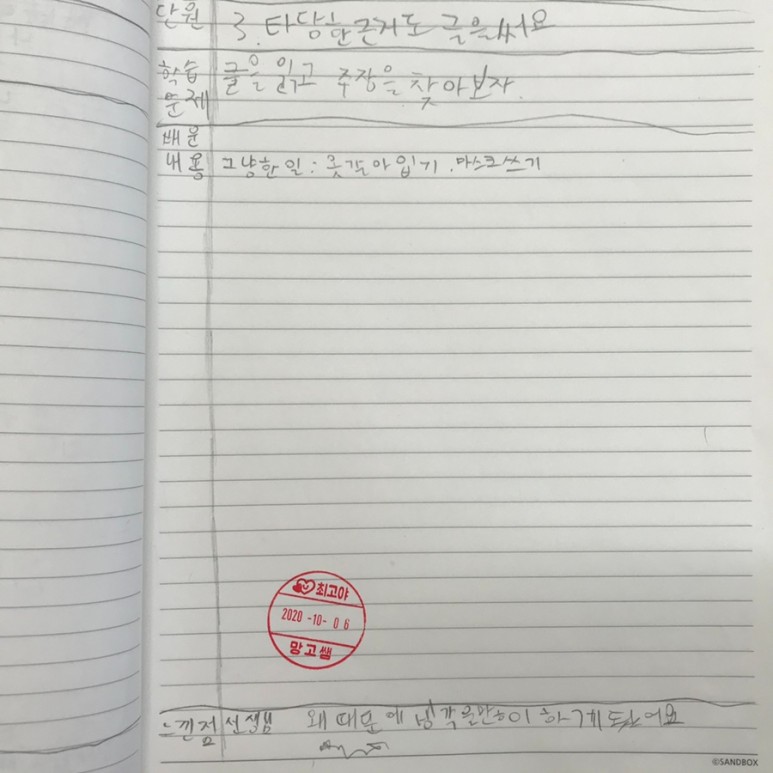 단원 3. 타당한 근거로 글을 써요
학습 글을 읽고 주장을 찾아보자.
문제
배운
내용 그냥한 일 : 옷갈아입기. 마스크쓰기
최고야
2020-10-06
망고쌤
느낀점 선생님 왜 때문에 생각을많이 하게 되어요
©SANDBOX